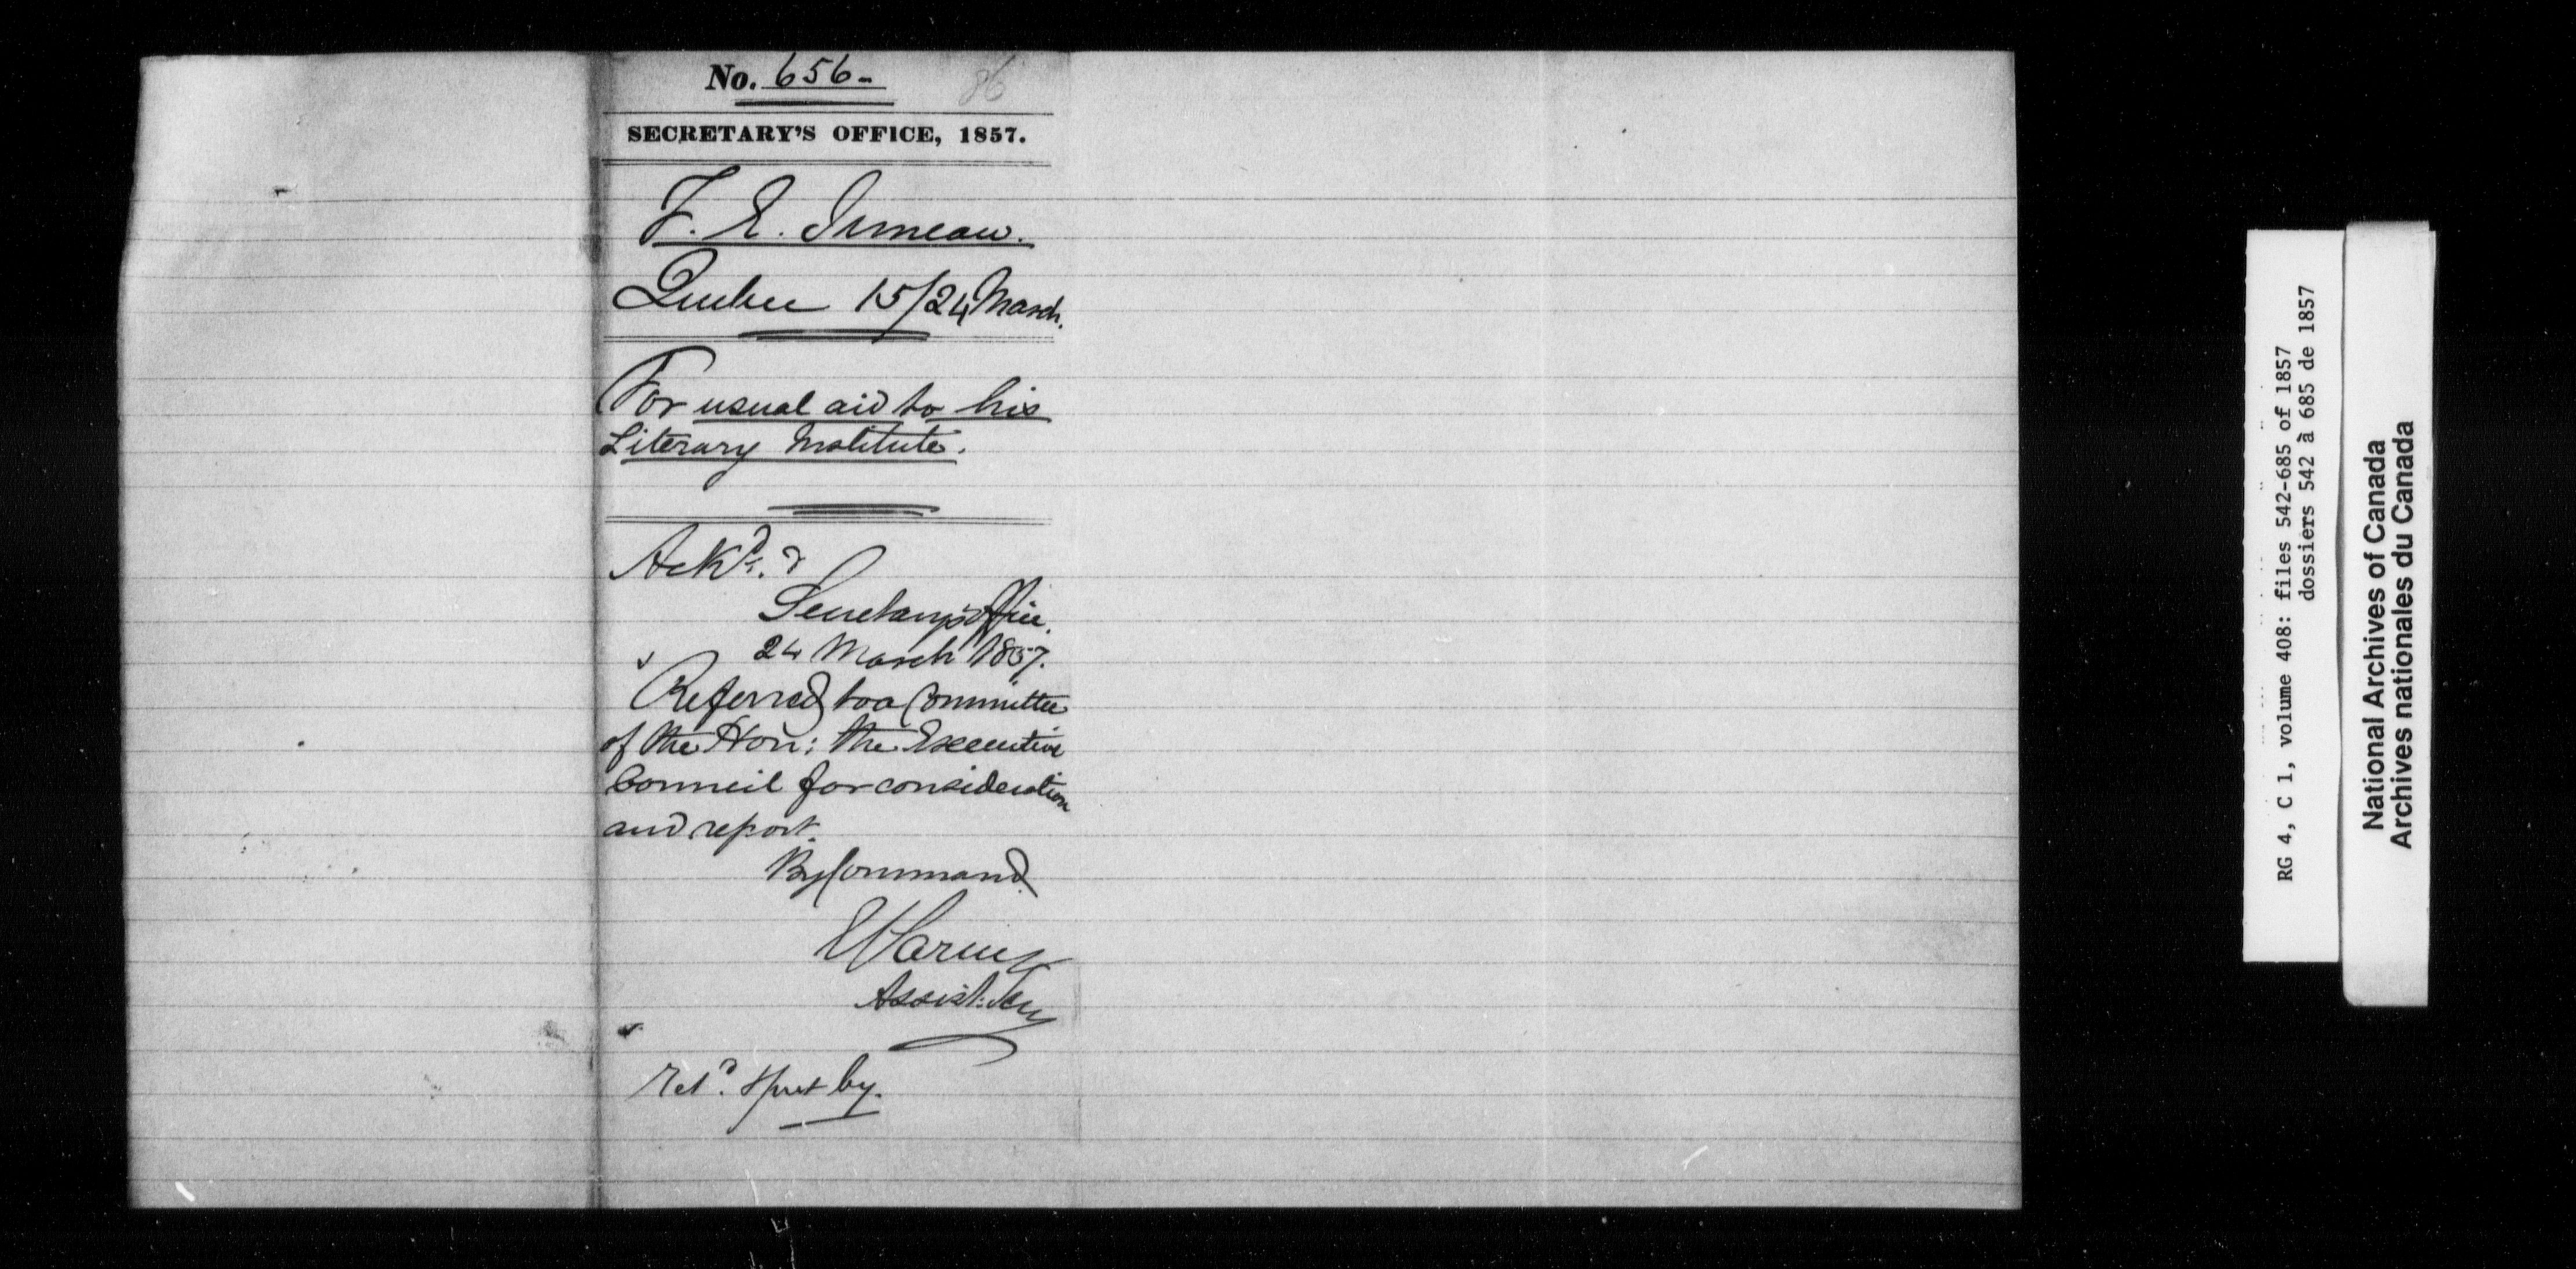 No. 656-
86
SECRETARY'S OFFICE, 1857.
F. E. Juneau.
Quebec 15/24 March.
For usual aid to his
Literary Institute.
Ackd. &
Secretary's Office.
24 March 1857.
Referred to a Committee
of the Hon: the Executive
Council for consideration
and report.
By Command
Assist: Secy
Retd. & put by.
RG 4, C 1, volume 408: files 542-685 of 1857
dossiers 542 à 685 de 1857
National Archives of Canada
Archives nationales du Canada